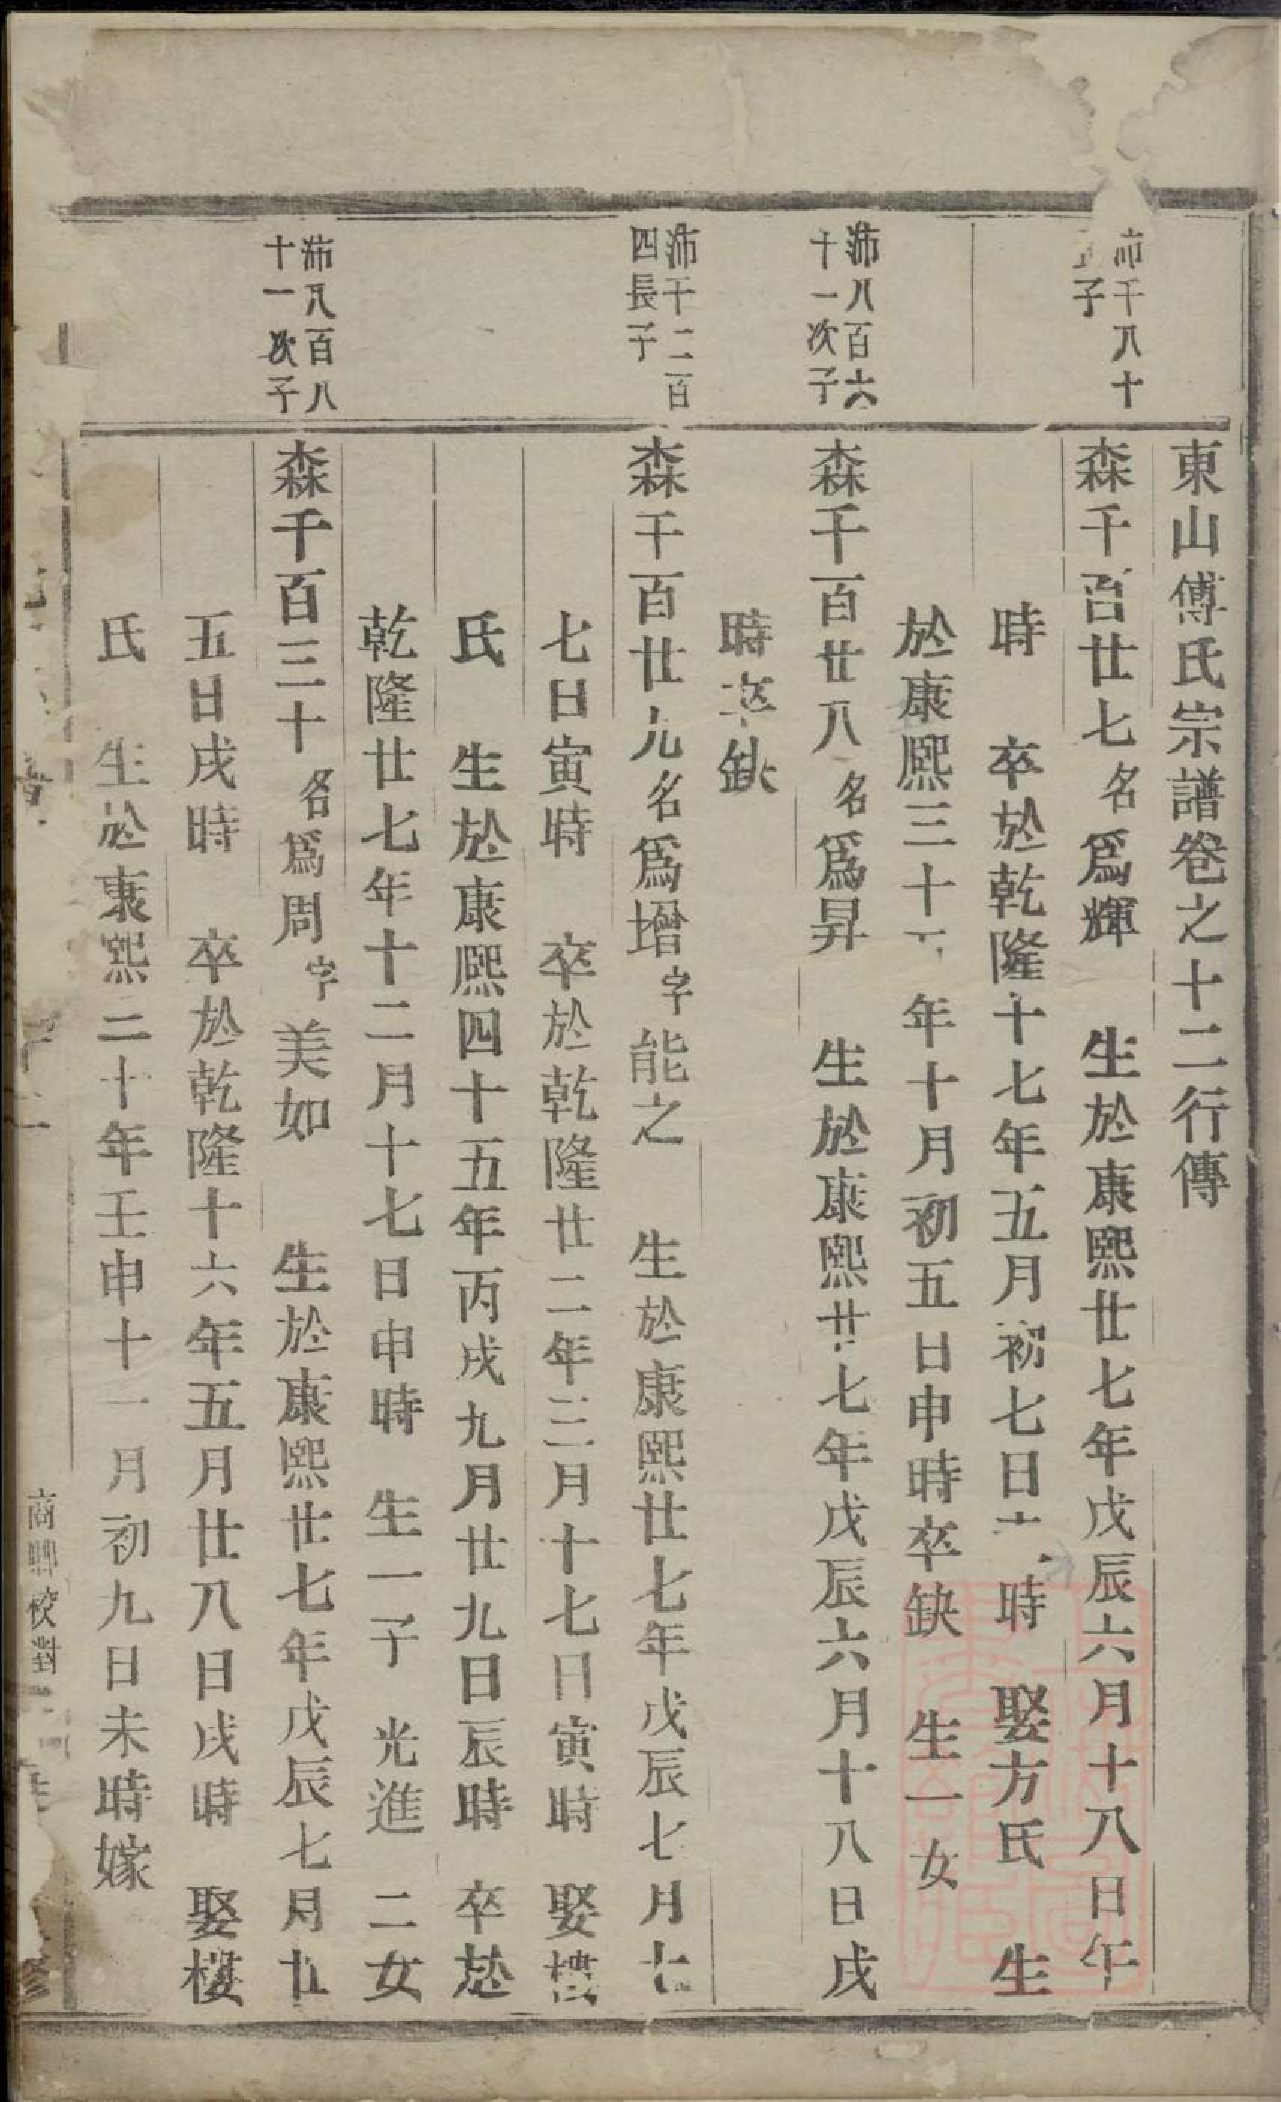 東山傅氏宗譜卷之十二行傳
千八十
子
森千百廿七名爲輝 生於康熙廿七年戊辰六月十八日午
時 卒於乾隆十七年五月初七日時 娶方氏 生
於康熙三十年十月初五日申時卒缺 生一女
沛八百六
十一次子
森千百廿八名爲昇 生於康熙廿七年戊辰六月十八日戌
時卒缺
沛千二百
四長子
森千百廿九名爲增字能之 生於康熙廿七年戊辰七月七
七日寅時 卒於乾隆廿二年三月十七日寅時 娶樓
氏 生於康熙四十五年丙戌九月廿九日辰時 卒於
乾隆廿七年十二月十七日申時 生一子 光進 二女
沛八百八
十一次子
森千百三十名爲周字美如 生於康熙廿七年戊辰七月廿
五日戌時 卒於乾隆十六年五月廿八日戌時 娶樓
氏 生於康熙二十年壬申十一月初九日未時嫁
校對